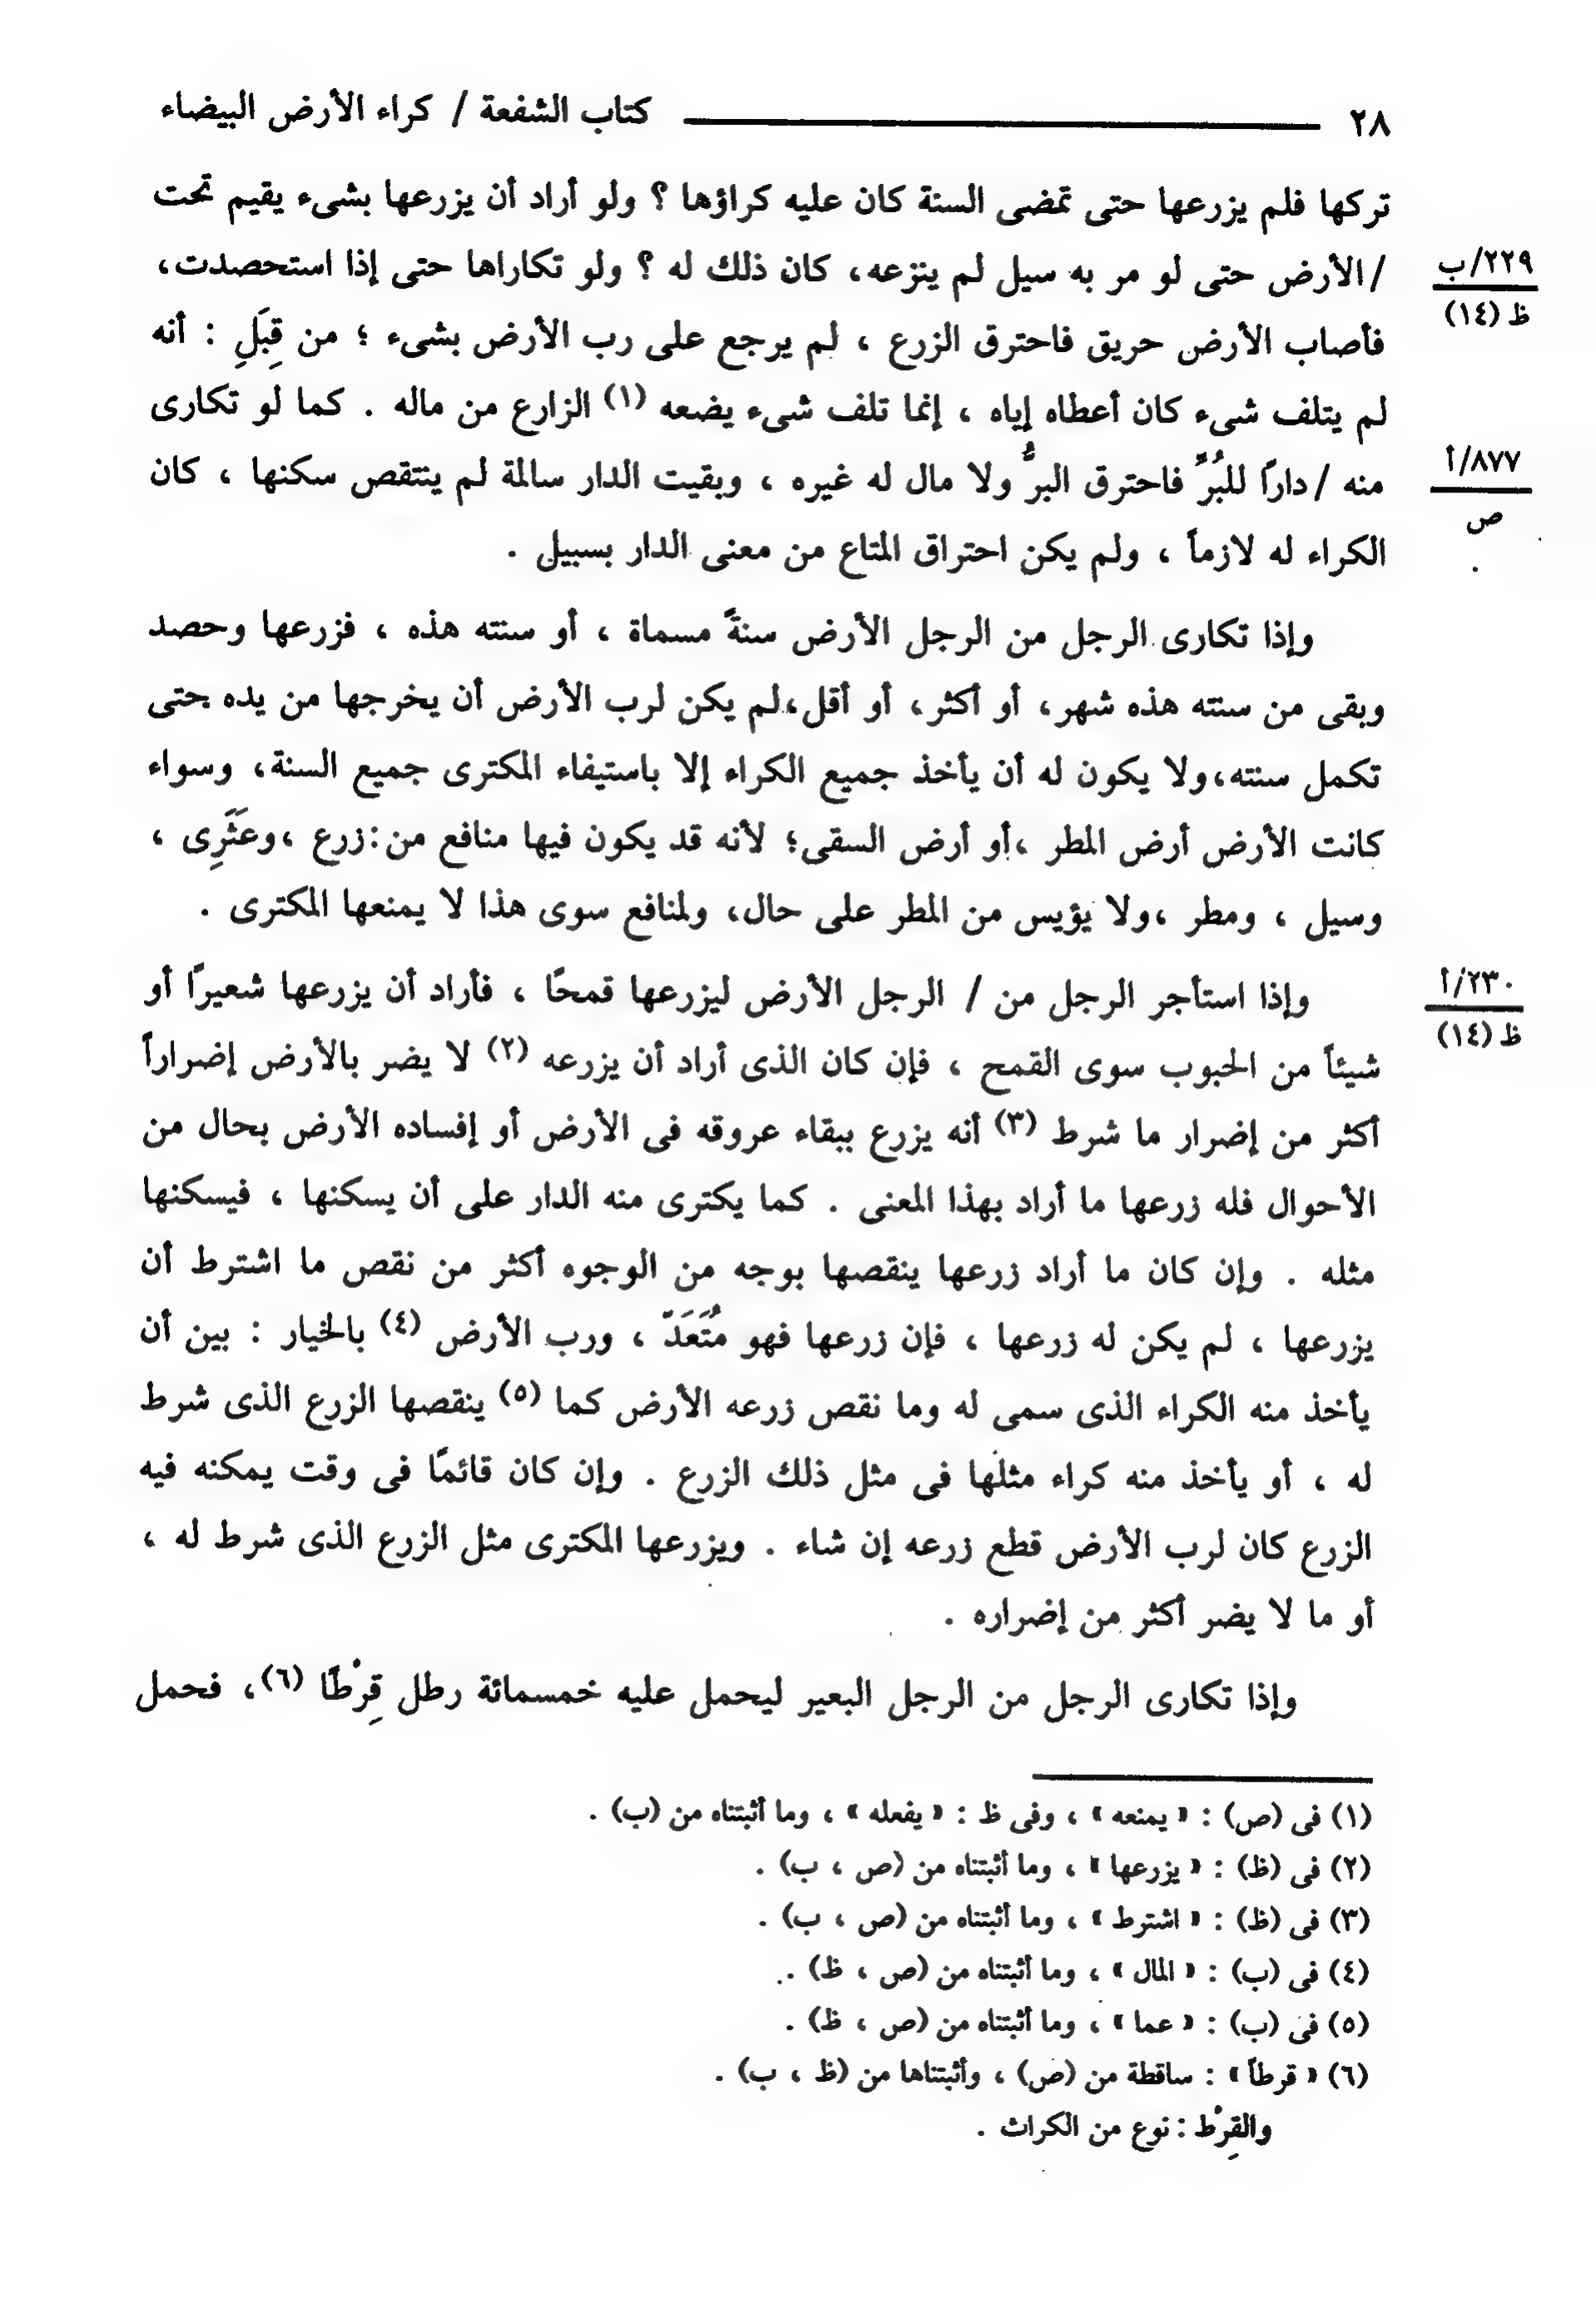 ٢٨ كتاب الشفعة / كراء الأرض البيضاء
تركها فلم يزرعها حتى تمضى السنة كان عليه كراؤها ؟ ولو أراد أن يزرعها بشىء يقيم تحت
/الأرض حتى لو مر به سيل لم ينزعه، كان ذلك له ؟ ولو تكاراها حتى إذا استحصدت،
٢٢٩/ب
ظ (١٤)
فأصاب الأرض حريق فاحترق الزرع ، لم يرجع على رب الأرض بشىء ؛ من قِبَلِ : أنه
لم يتلف شىء كان أعطاه إياه ، إنما تلف شىء يضعه (١) الزارع من ماله . كما لو تكارى
منه /دارًا للبُرِّ فاحترق البرُّ ولا مال له غيره ، وبقيت الدار سالمة لم ينتقص سكنها ، كان
٨٧٧/أ
ص
الكراء له لازماً ، ولم يكن احتراق المتاع من معنى الدار بسبيل .
وإذا تكارى الرجل من الرجل الأرض سنةً مسماة ، أو سنته هذه ، فزرعها وحصد
وبقى من سنته هذه شهر، أو أكثر، أو أقل،لم يكن لرب الأرض أن يخرجها من يده حتى
تكمل سنته،ولا يكون له أن يأخذ جميع الكراء إلا باستيفاء المكترى جميع السنة، وسواء
كانت الأرض أرض المطر ،أو أرض السقى؛ لأنه قد يكون فيها منافع من:زرع ،وعَثَرِى ،
وسيل ، ومطر ،ولا يؤيس من المطر على حال، ولمنافع سوى هذا لا يمنعها المكترى .
وإذا استأجر الرجل من / الرجل الأرض ليزرعها قمحًا ، فأراد أن يزرعها شعيرًا أو
٢٣٠/أ
ظ (١٤)
شيئاً من الحبوب سوى القمح ، فإن كان الذى أراد أن يزرعه (٢) لا يضر بالأرض إضراراً
أكثر من إضرار ما شرط (٣) أنه يزرع ببقاء عروقه فى الأرض أو إفساده الأرض بحال من
الأحوال فله زرعها ما أراد بهذا المعنى . كما يكترى منه الدار على أن يسكنها ، فيسكنها
مثله . وإن كان ما أراد زرعها ينقصها بوجه من الوجوه أكثر من نقص ما اشترط أن
يزرعها ، لم يكن له زرعها ، فإن زرعها فهو مُتَعَدّ ، ورب الأرض (٤) بالخيار : بين أن
يأخذ منه الكراء الذى سمى له وما نقص زرعه الأرض كما (٥) ينقصها الزرع الذى شرط
له ، أو يأخذ منه كراء مثلها فى مثل ذلك الزرع . وإن كان قائمًا فى وقت يمكنه فيه
الزرع كان لرب الأرض قطع زرعه إن شاء . ويزرعها المكترى مثل الزرع الذى شرط له ،
أو ما لا يضر أكثر من إضراره .
وإذا تكارى الرجل من الرجل البعير ليحمل عليه خمسمائة رطل قِرْطًا (٦)، فحمل
(١) فى (ص) : « يمنعه » ، وفى ظ : « يفعله » ، وما أثبتناه من (ب) .
(٢) فى (ظ) : « يزرعها » ، وما أثبتناه من (ص ، ب) .
(٣) فى (ظ) : « اشترط » ، وما أثبتناه من (ص ، ب) .
(٤) فى (ب) : « المال » ، وما أثبتناه من (ص ، ظ) .
(٥) فى (ب) : « عما » ، وما أثبتناه من (ص ، ظ) .
(٦) « قرطاً » : ساقطة من (ص) ، وأثبتناها من (ظ ، ب) .
والقِرْط : نوع من الكراث .